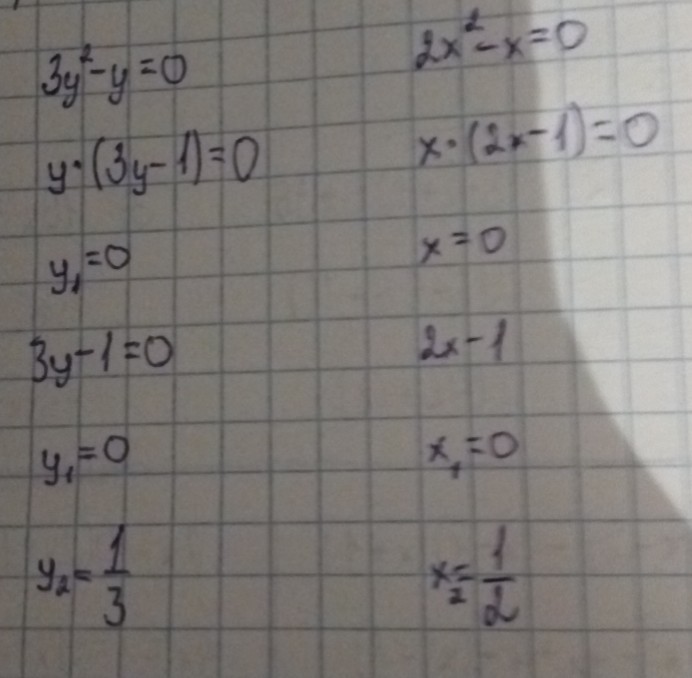 3y²-y=0
y·(3y-1)=0
y₁=0
3y-1=0
y₁=0
y₂=1/3
2x²-x=0
x·(2x-1)=0
x=0
2x-1
x₁=0
x₂=1/2